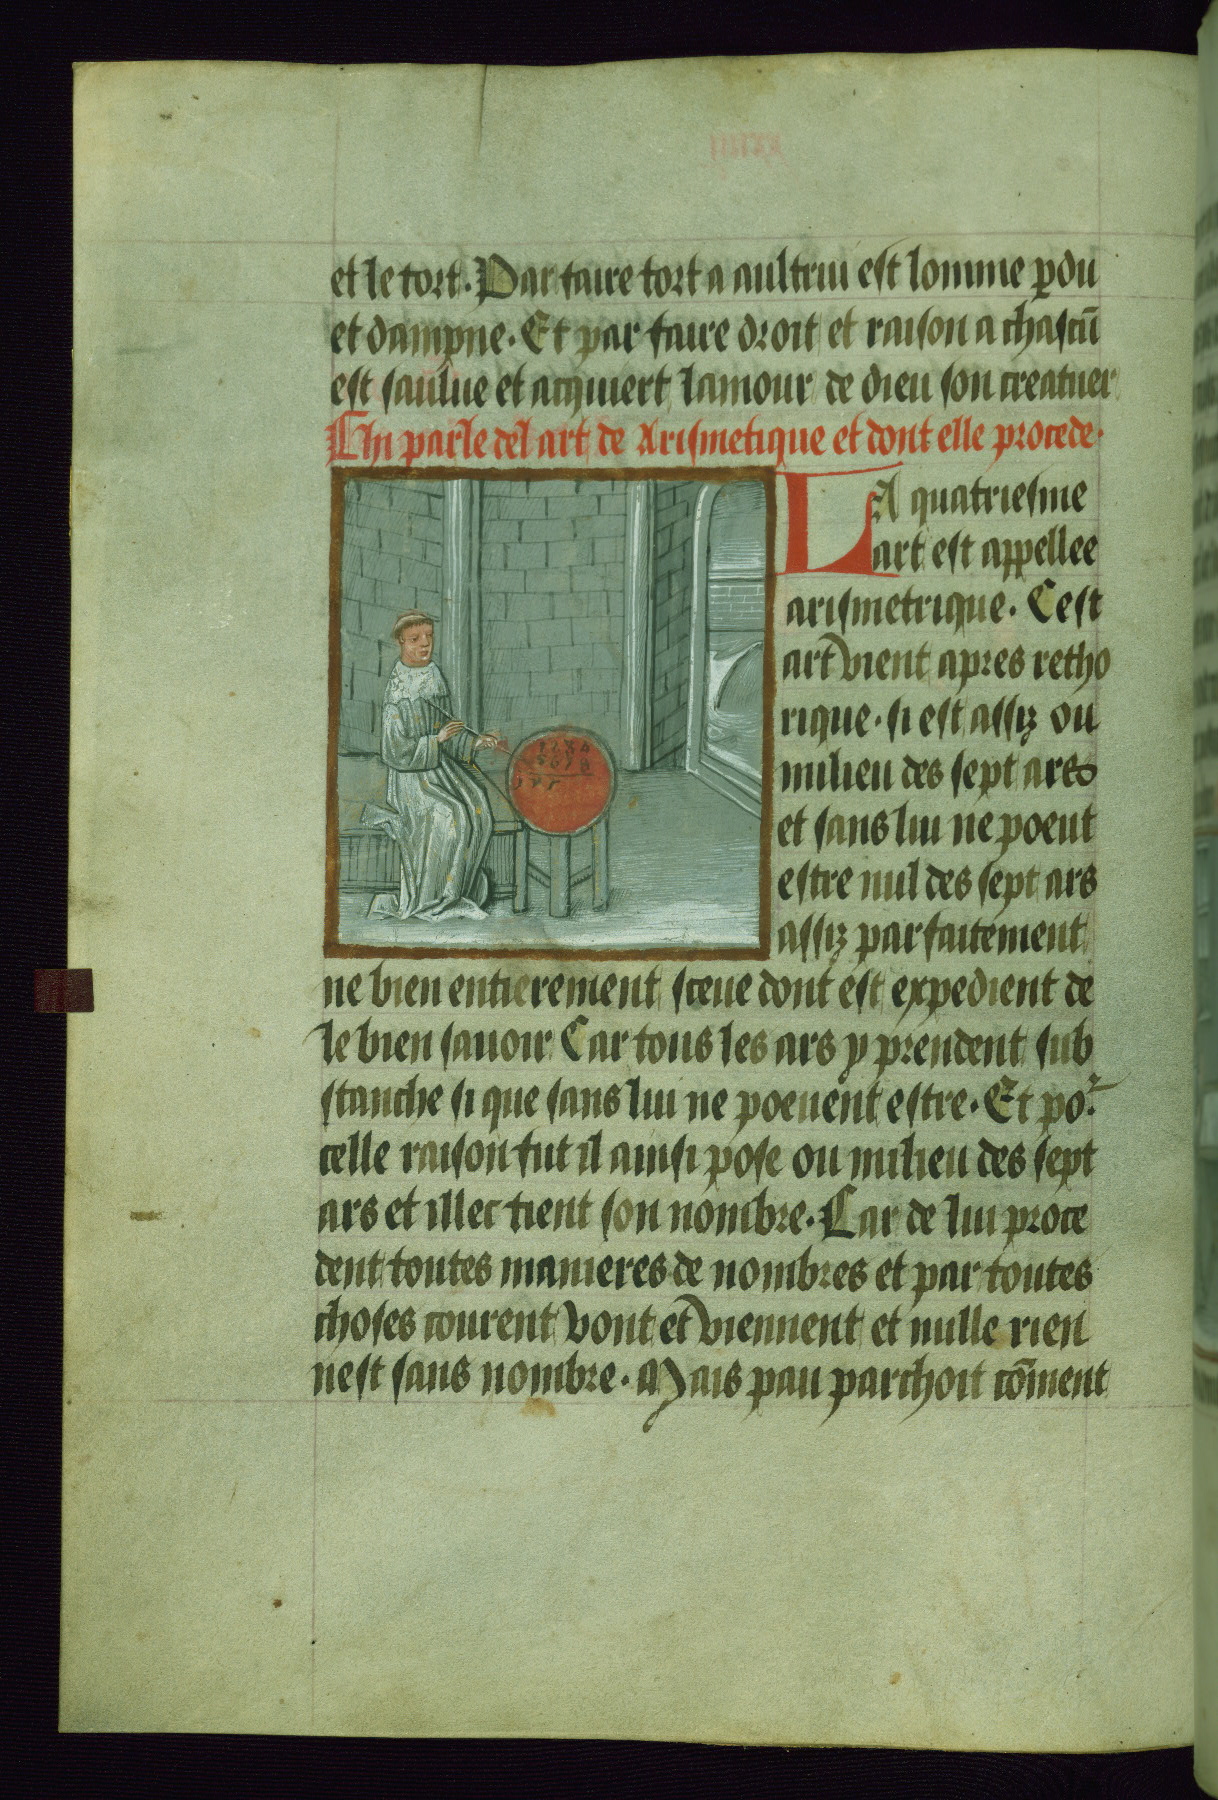 et le tort. Par faire tort a aultrui est lomme p̱du
et dampne. Et par faire droit et raison a chascũ
est saulue et acquiert lamour de dieu son creatuer
Chi parle del art de Arismetique et dont elle procede.
LA quatriesme
art est appellee
arismetrique. Cest
art vient apres retho
rique. si est assiz ou
milieu des sept ars
et sans lui ne poeut
estre nul des sept ars
assiz parfaitement
ne bien entierement sceue dont est expedient de
le bien sauoir Car tous les ars y prendent sub
stanche si que sans lui ne poeuent estre. Et poᷣ
celle raison fut il ainsi pose ou milieu des sept
ars et illec tient son nombre. Car de lui proce
dent toutes manieres de nombres et par toutes
choses courent vont et viennent et nulle rien
nest sans nombre. Mais pau parchoit cõment